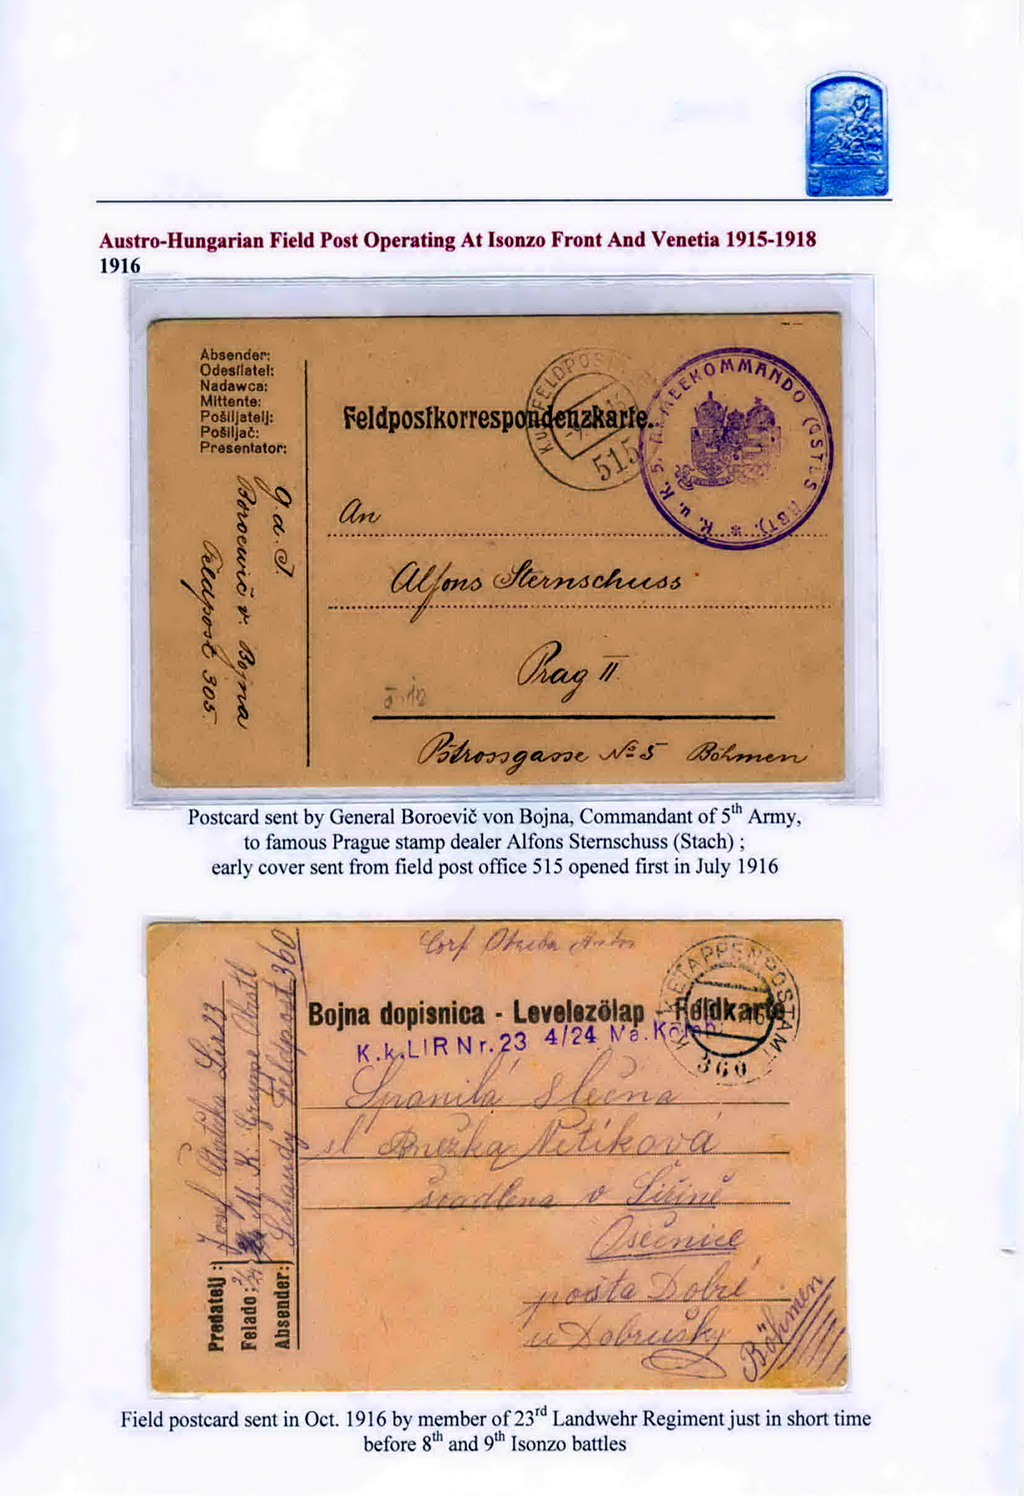 Austro-Hungarian Field Post Operating At Isonzo Front And Venetia 1915-1918
1916
Absender:
Odesílatel:
Nadawca:
Mittente:
Pošiljatelj:
Pošiljač:
Presentator:
G. d. I.
Boroević v. Bojna
Feldpost 305.
Feldpostkorrespondenzkarte.
K.u.K. FELDPOST
515
K. u. K. 5. ARMEEKOMMANDO (GSTLS ABT). *
An
Alfons Sternschuss
Prag II.
Pštrossgasse No 5 Böhmen
Postcard sent by General Boroevič von Bojna, Commandant of 5th Army,
to famous Prague stamp dealer Alfons Sternschuss (Stach) ;
early cover sent from field post office 515 opened first in July 1916
Bojna dopisnica - Levelezőlap - Feldkarte
K.k. LIR Nr. 23 4/24 Ma. Komp.
K.K. ETAPPENPOSTAMT
360
Predatelj :
Felado :
Absender:
Josef LIR 23
M. K. Gruppe Obstl
Schaudy Feldpost 360
Spanilá Slečna
sl Anežka Netíková
švadlena v
Osečnice
pošta Dobré
u Dobrušky
Böhmen
Field postcard sent in Oct. 1916 by member of 23rd Landwehr Regiment just in short time
before 8th and 9th Isonzo battles